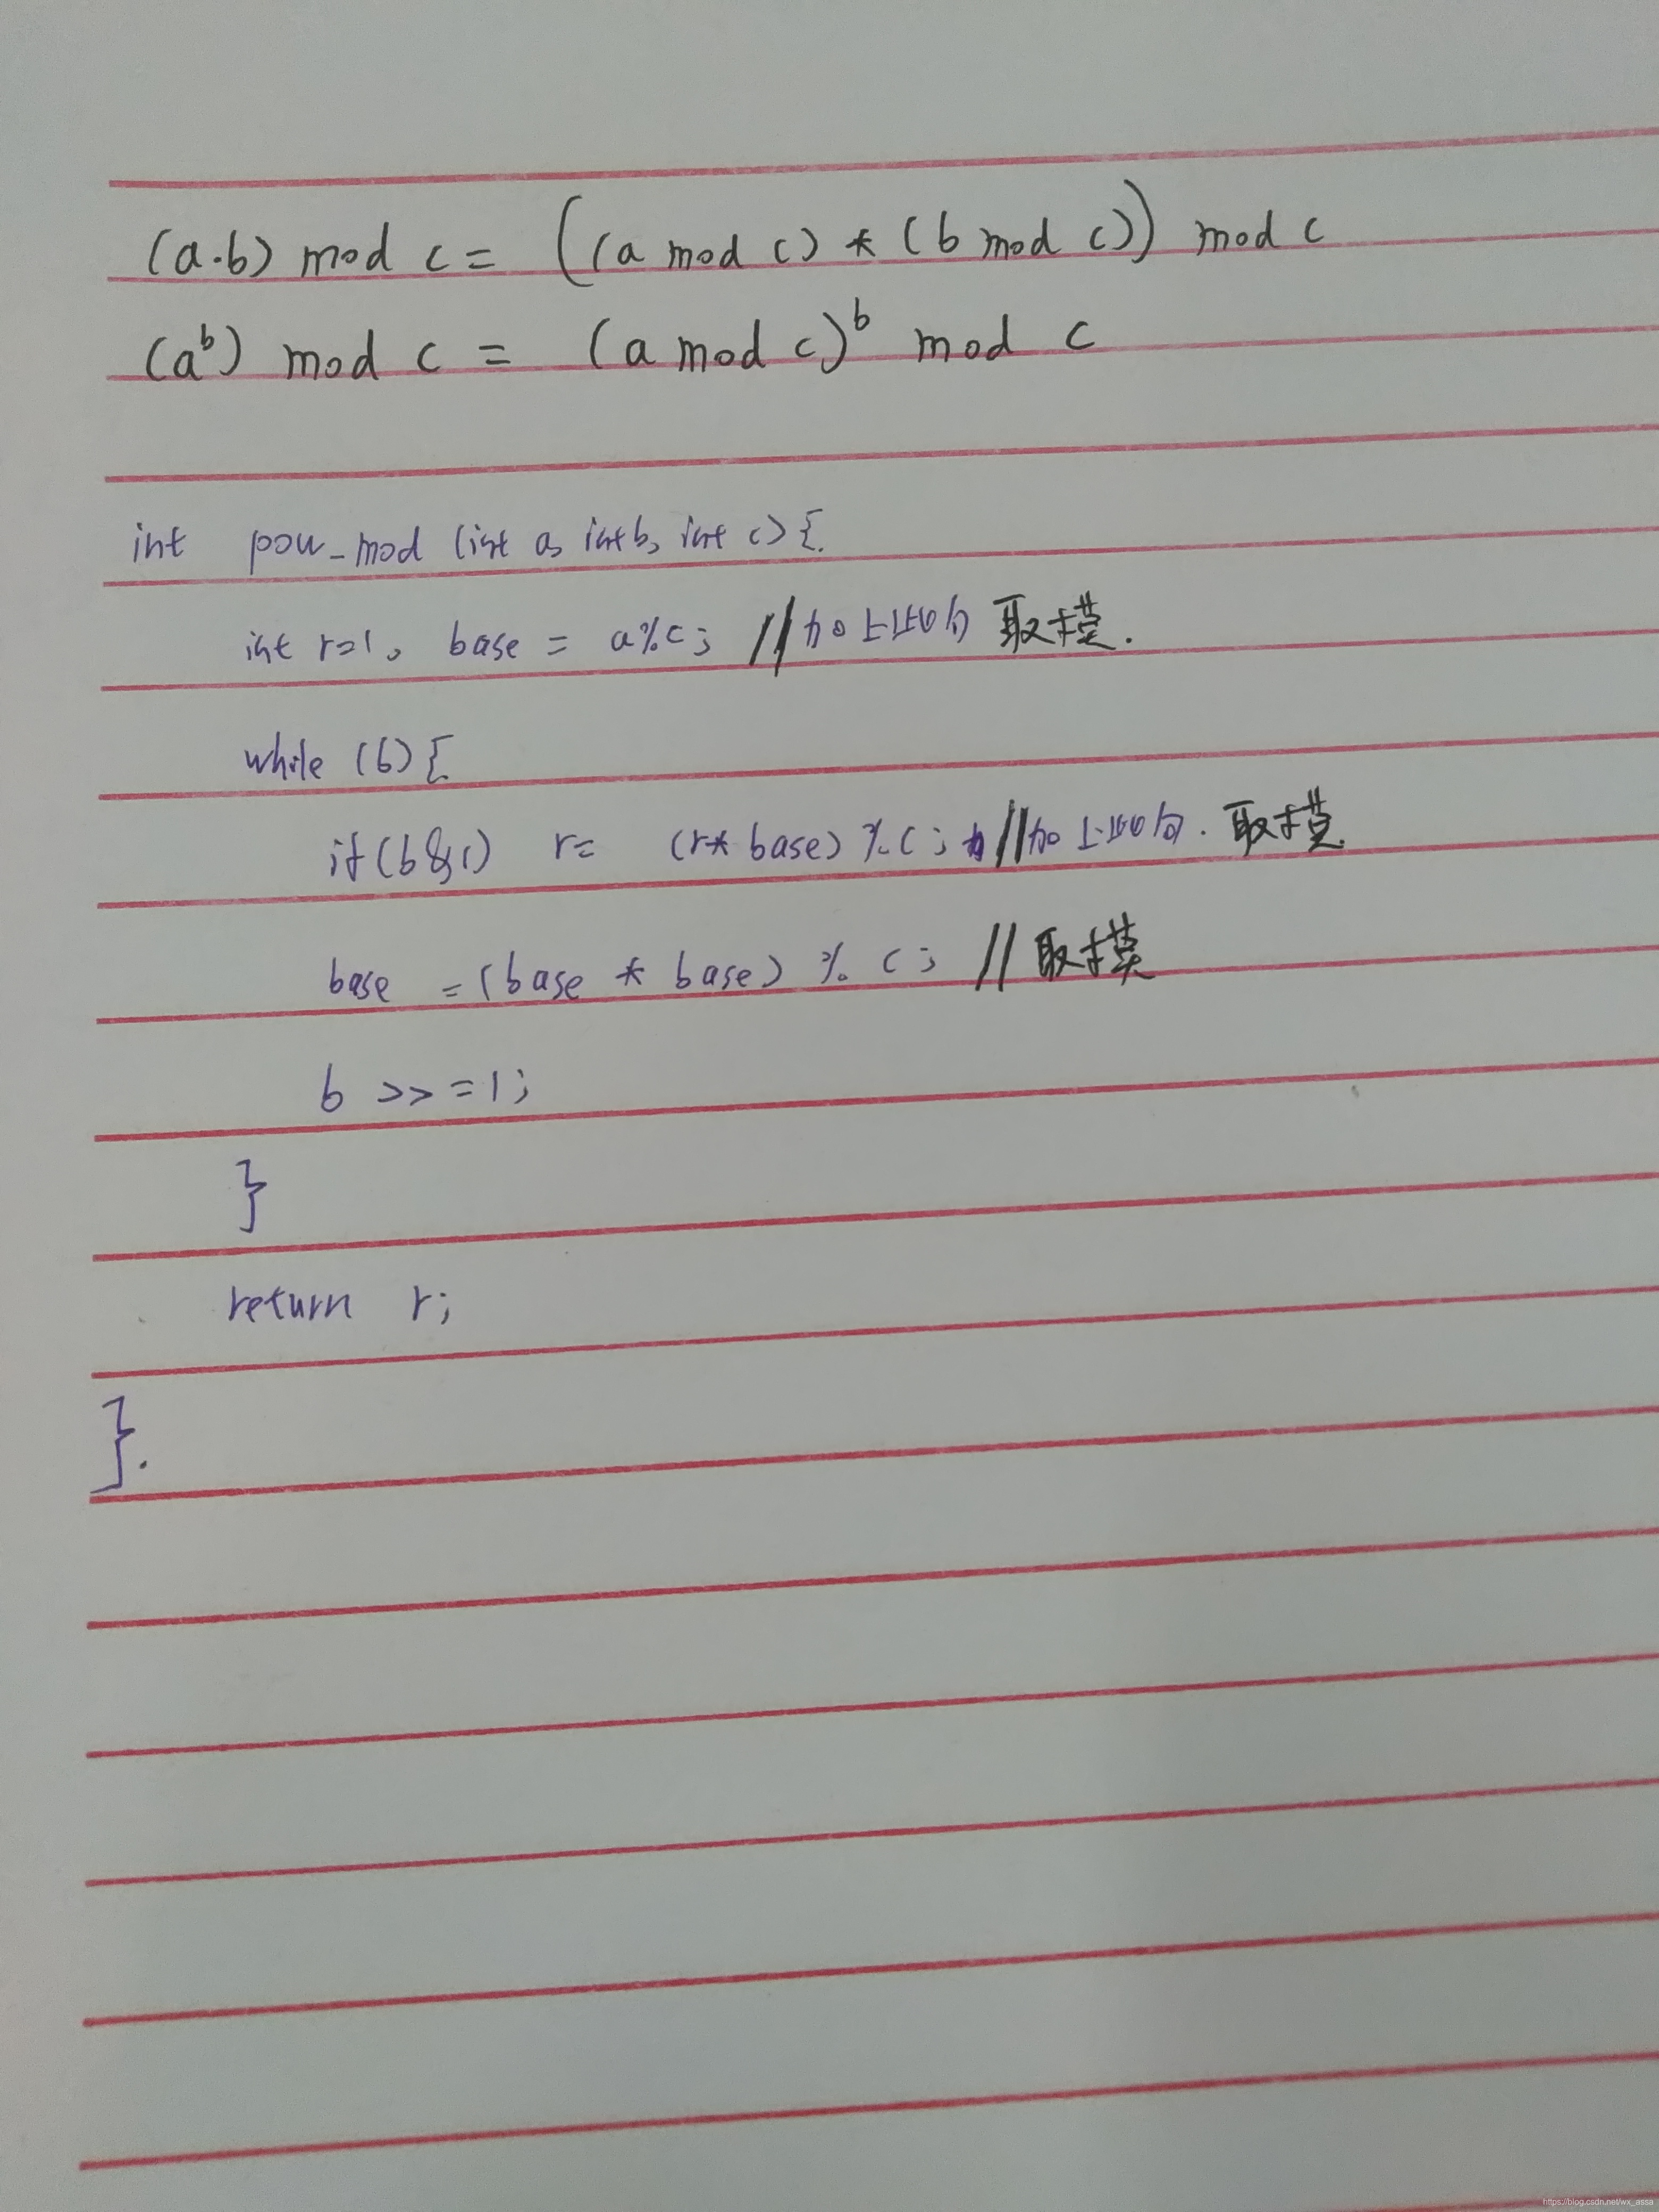 (a·b) mod c = ((a mod c) * (b mod c)) mod c
(a^b) mod c = (a mod c)^b mod c
int pow_mod (int a, int b, int c) {
int r=1, base = a%c; //加上此句 取模.
while (b) {
if(b&1) r= (r* base) %c; //加上此句. 取模.
base =(base * base) % c; // 取模
b >>=1;
}
return r;
}.
https://blog.csdn.net/wx_assa